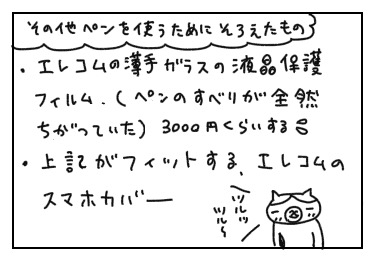 その他ペンを使うためにそろえたもの
・エレコムの薄手ガラスの液晶保護
フィルム.(ペンのすべりが全然
ちがっていた)3000円くらいする
・上記がフィットする、エレコムの
スマホカバー
ツルッ
ツル〜